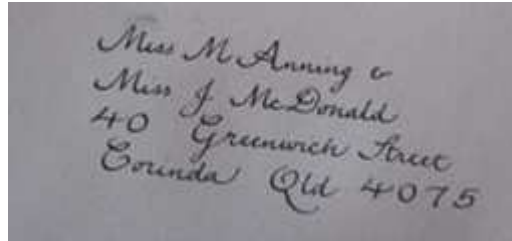 Miss M Anning &
Miss J McDonald
40 Greenwich Street
Corinda Qld 4075